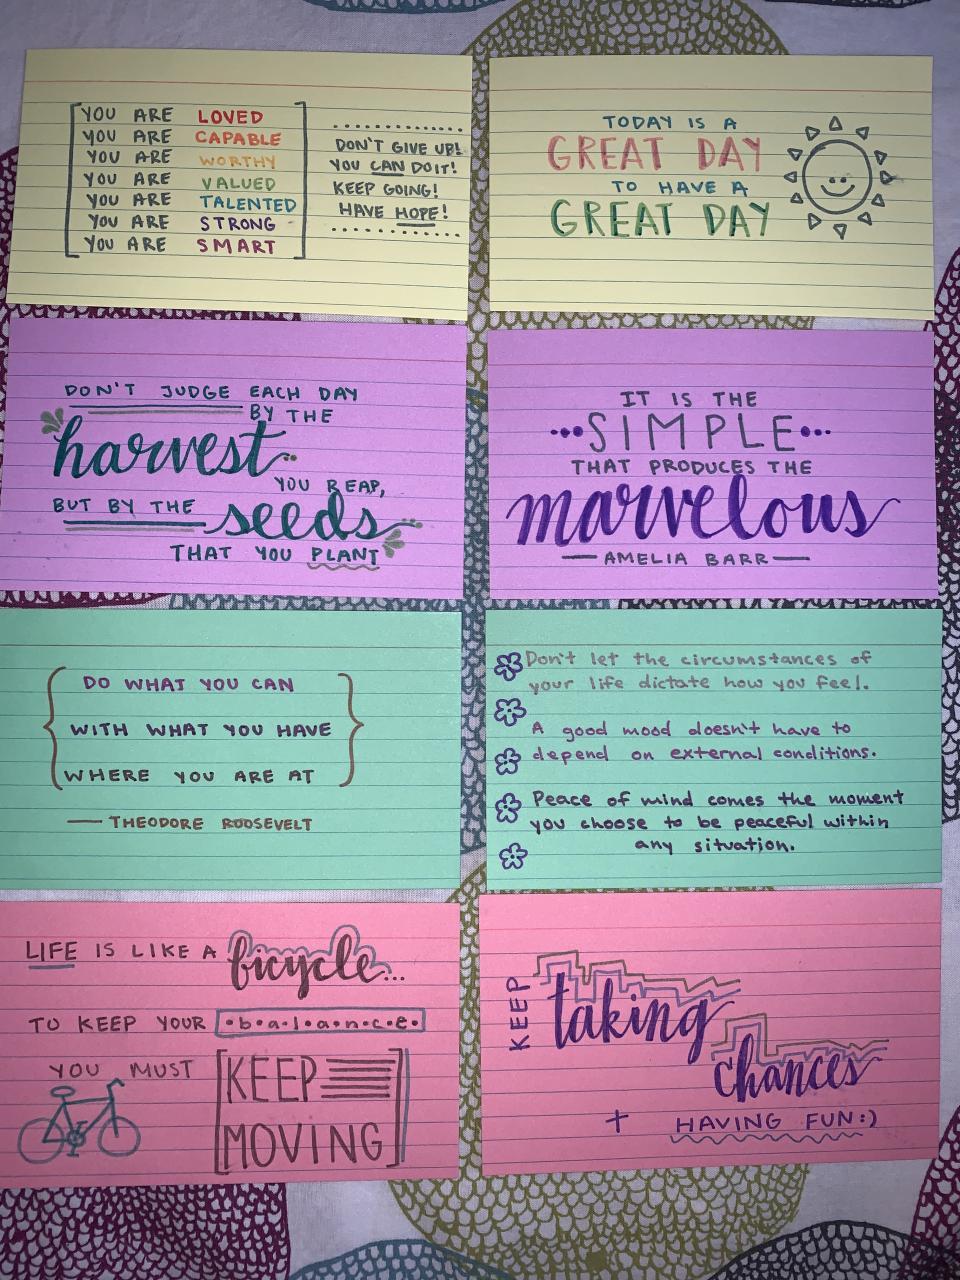 YOU ARE LOVED
YOU ARE CAPABLE
YOU ARE WORTHY
YOU ARE VALUED
YOU ARE TALENTED
YOU ARE STRONG
YOU ARE SMART
DON'T GIVE UP!
YOU CAN DO IT!
KEEP GOING!
HAVE HOPE!
TODAY IS A
GREAT DAY
TO HAVE A
GREAT DAY
DON'T JUDGE EACH DAY
BY THE
harvest
YOU REAP,
BUT BY THE seeds
THAT YOU PLANT
IT IS THE
SIMPLE
THAT PRODUCES THE
marvelous
— AMELIA BARR —
DO WHAT YOU CAN
WITH WHAT YOU HAVE
WHERE YOU ARE AT
— THEODORE ROOSEVELT
Don't let the circumstances of
your life dictate how you feel.
A good mood doesn't have to
depend on external conditions.
Peace of mind comes the moment
you choose to be peaceful within
any situation.
LIFE IS LIKE A bicycle...
TO KEEP YOUR •b•a•l•a•n•c•e•
YOU MUST KEEP
MOVING
KEEP taking
chances
+ HAVING FUN:)